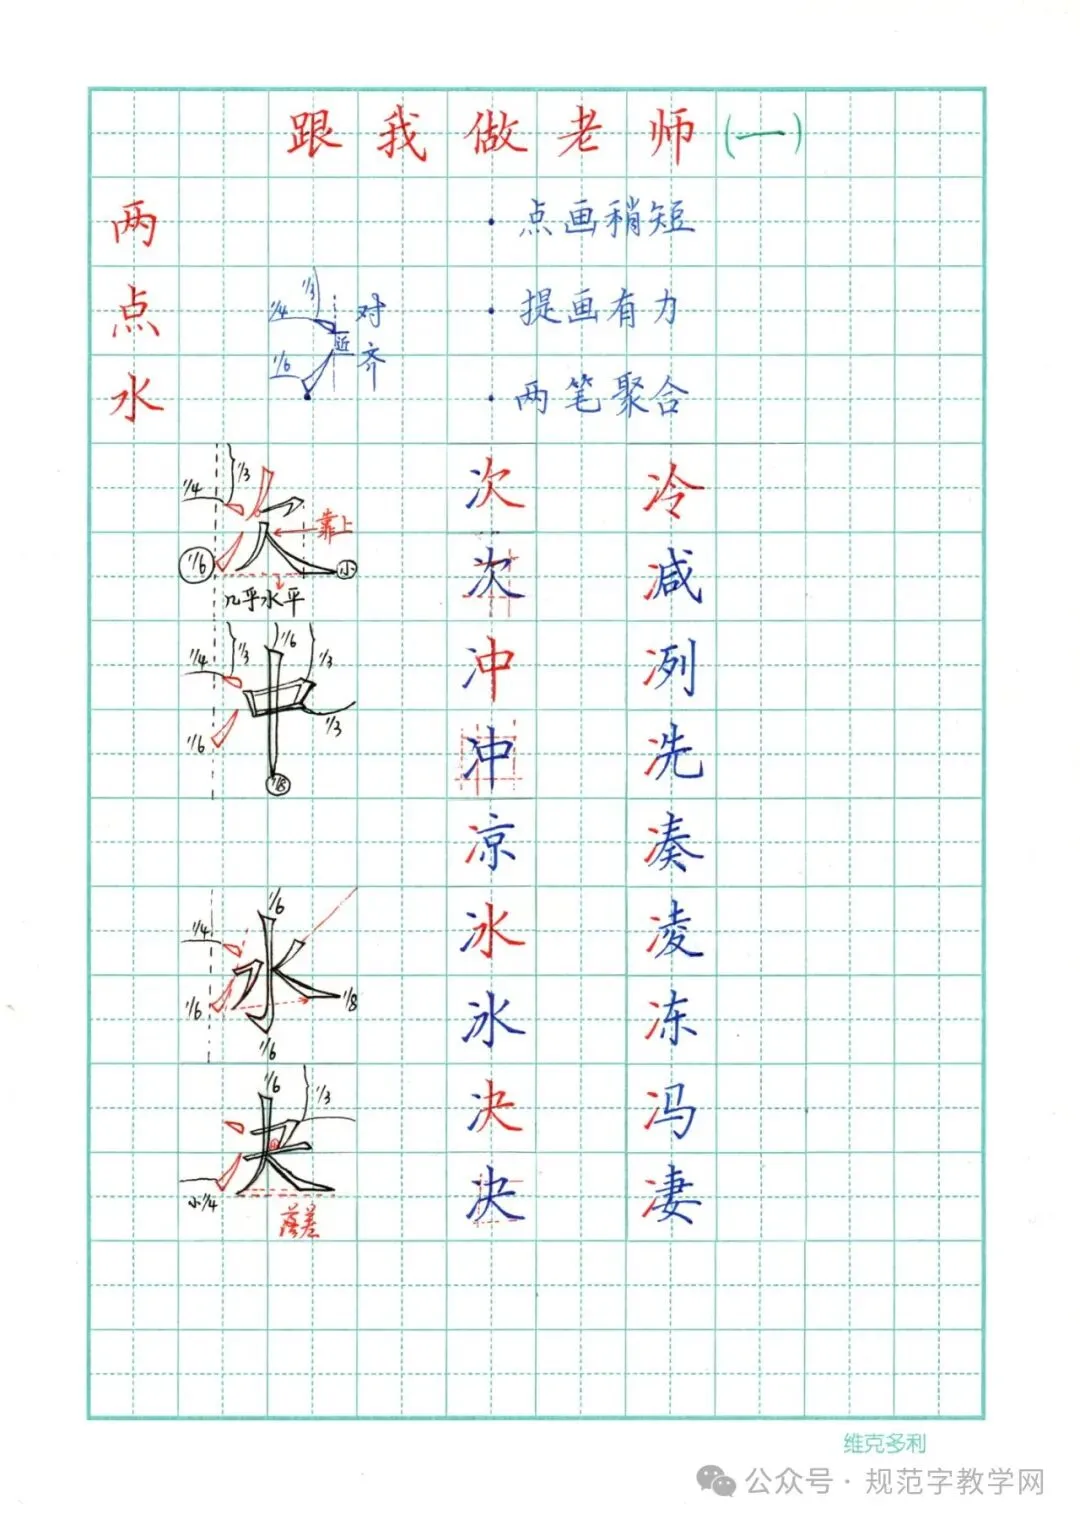 跟我做老师(一)
两点水
·点画稍短
·提画有力
·两笔聚合
1/3
1/4
对齐
近
1/6
1/4
1/3
次
靠上
1/6
小
几乎水平
次 冷
次 减
1/6
1/4
1/3
1/3
冲
1/6
1/3
1/8
冲 冽
冲 冼
凉 凑
1/6
1/4
冰
1/6
1/8
1/6
冰 凌
冰 冻
1/6
1/3
决
小1/4
落差
决 冯
决 凄
维克多利
公众号·规范字教学网